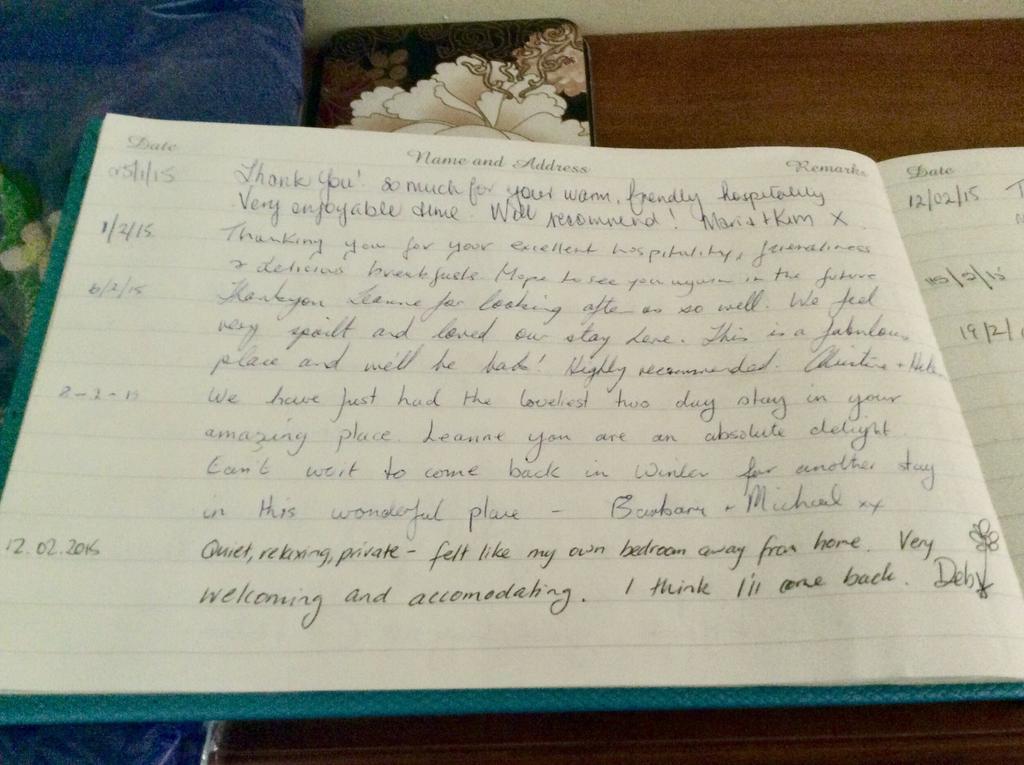 Date Name and Address Remarks
25/1/15 Thank You! so much for your warm, frendly hospitality
Very enjoyable time. Will recommend! Maria + Kim X
1/2/15 Thanking you for your excellent hospitality, friendliness
& delicious breakfasts. Hope to see you again in the future
6/2/15 Thankyou Leanne for looking after us so well. We feel
very spoilt and loved our stay here. This is a fabulous
place and we'll be back! Highly recommended. Christine + Helen
8-2-15 We have just had the loveliest two day stay in your
amazing place. Leanne you are an absolute delight.
Can't wait to come back in Winter for another stay
in this wonderful place - Barbara + Michael xx
12.02.2015 Quiet, relaxing, private - felt like my own bedroom away from home. Very
welcoming and accomodating. I think I'll come back. Deby
Date
12/02/15
15/2/15
19/2/